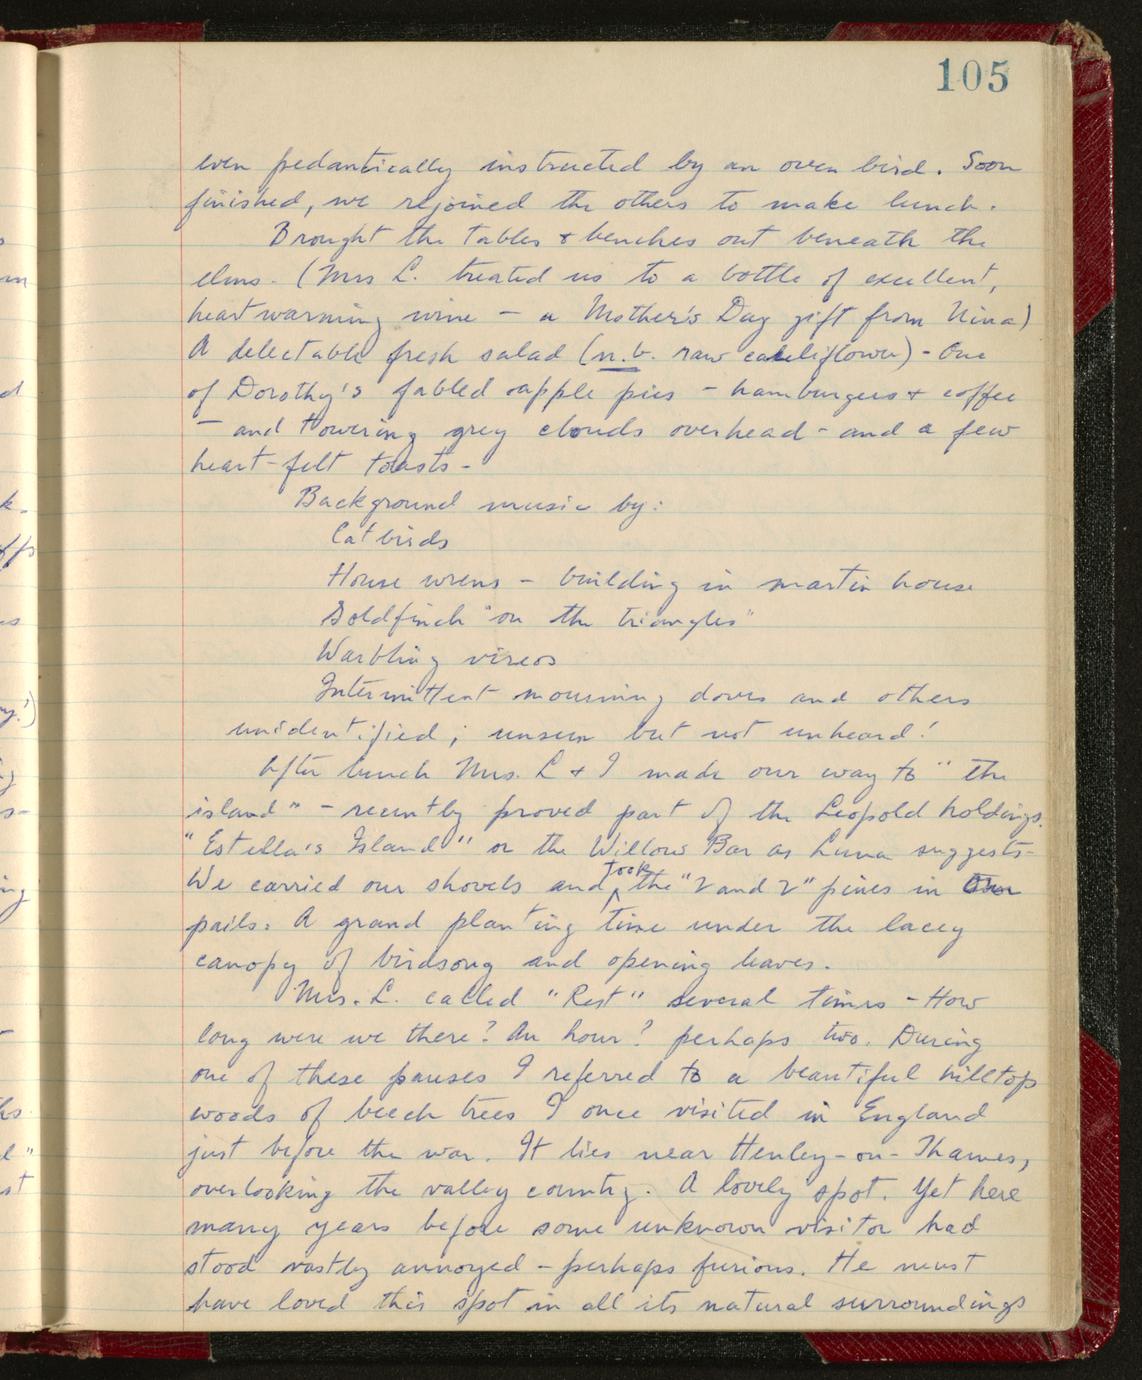 105
even pedantically instructed by an oven bird. Soon
finished, we rejoined the others to make lunch.
Brought the tables & benches out beneath the
elms. (Mrs L. treated us to a bottle of excellent,
heartwarming wine – a Mother's Day gift from Nina)
A delectable fresh salad (n.b. raw cauliflower) - One
of Dorothy's fabled apple pies – hamburgers & coffee
– and towering grey clouds overhead - and a few
heart-felt toasts -
Background music by:
Catbirds
House wrens – building in martin house
Goldfinch "on the triangles"
Warbling vireos
Intermittent mourning doves and others
unidentified; unseen but not unheard!
After lunch Mrs. L & I made our way to "the
island" – recently proved part of the Leopold holdings.
"Estella's Island" or the Willow Bar as Luna suggests-
We carried our shovels and took the "2 and 2" pines in our
pails. A grand planting time under the lacey
canopy of birdsong and opening leaves.
Mrs. L. called "Rest" several times - How
long were we there? An hour? perhaps two. During
one of these pauses I referred to a beautiful hilltop
woods of beech trees I once visited in England
just before the war. It lies near Henley-on-Thames,
overlooking the valley country. A lovely spot. Yet here
many years before some unknown visitor had
stood vastly annoyed – perhaps furious. He must
have loved this spot in all its natural surroundings